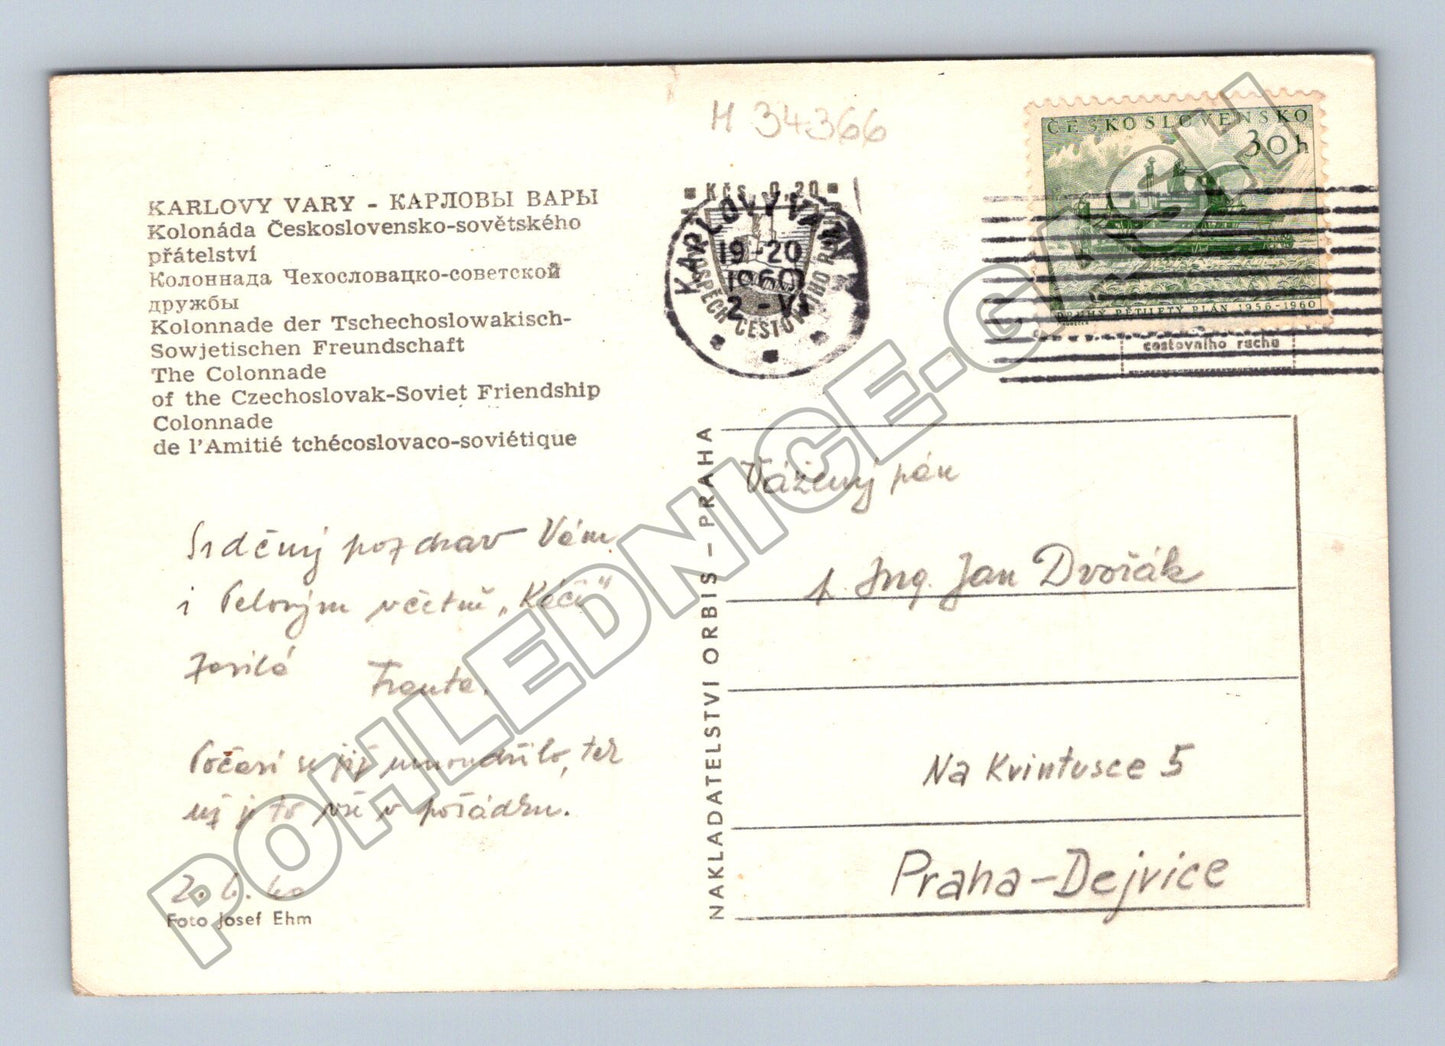 H 34366
ČESKOSLOVENSKO
30 h
DRUHÝ PĚTILETÝ PLÁN 1956-1960
Kčs 0,20
KARLOVY VARY
19-20
1960
2-VI
cestovního ruchu
KARLOVY VARY - КАРЛОВЫ ВАРЫ
Kolonáda Československo-sovětského
přátelství
Колоннада Чехословацко-советской
дружбы
Kolonnade der Tschechoslowakisch-
Sowjetischen Freundschaft
The Colonnade
of the Czechoslovak-Soviet Friendship
Colonnade
de l'Amitié tchécoslovaco-soviétique
Srdečný pozdrav Vám
i Pelovým včetně „Káči"
zasílá Franta.
Počasí se již umoudřilo, tak
už je to vše v pořádku.
2.6.60
Foto Josef Ehm
NAKLADATELSTVÍ ORBIS - PRAHA
Vážený pán
Ing. Jan Dvořák
Na Kvintusce 5
Praha-Dejvice
POHLEDNICE-CASH